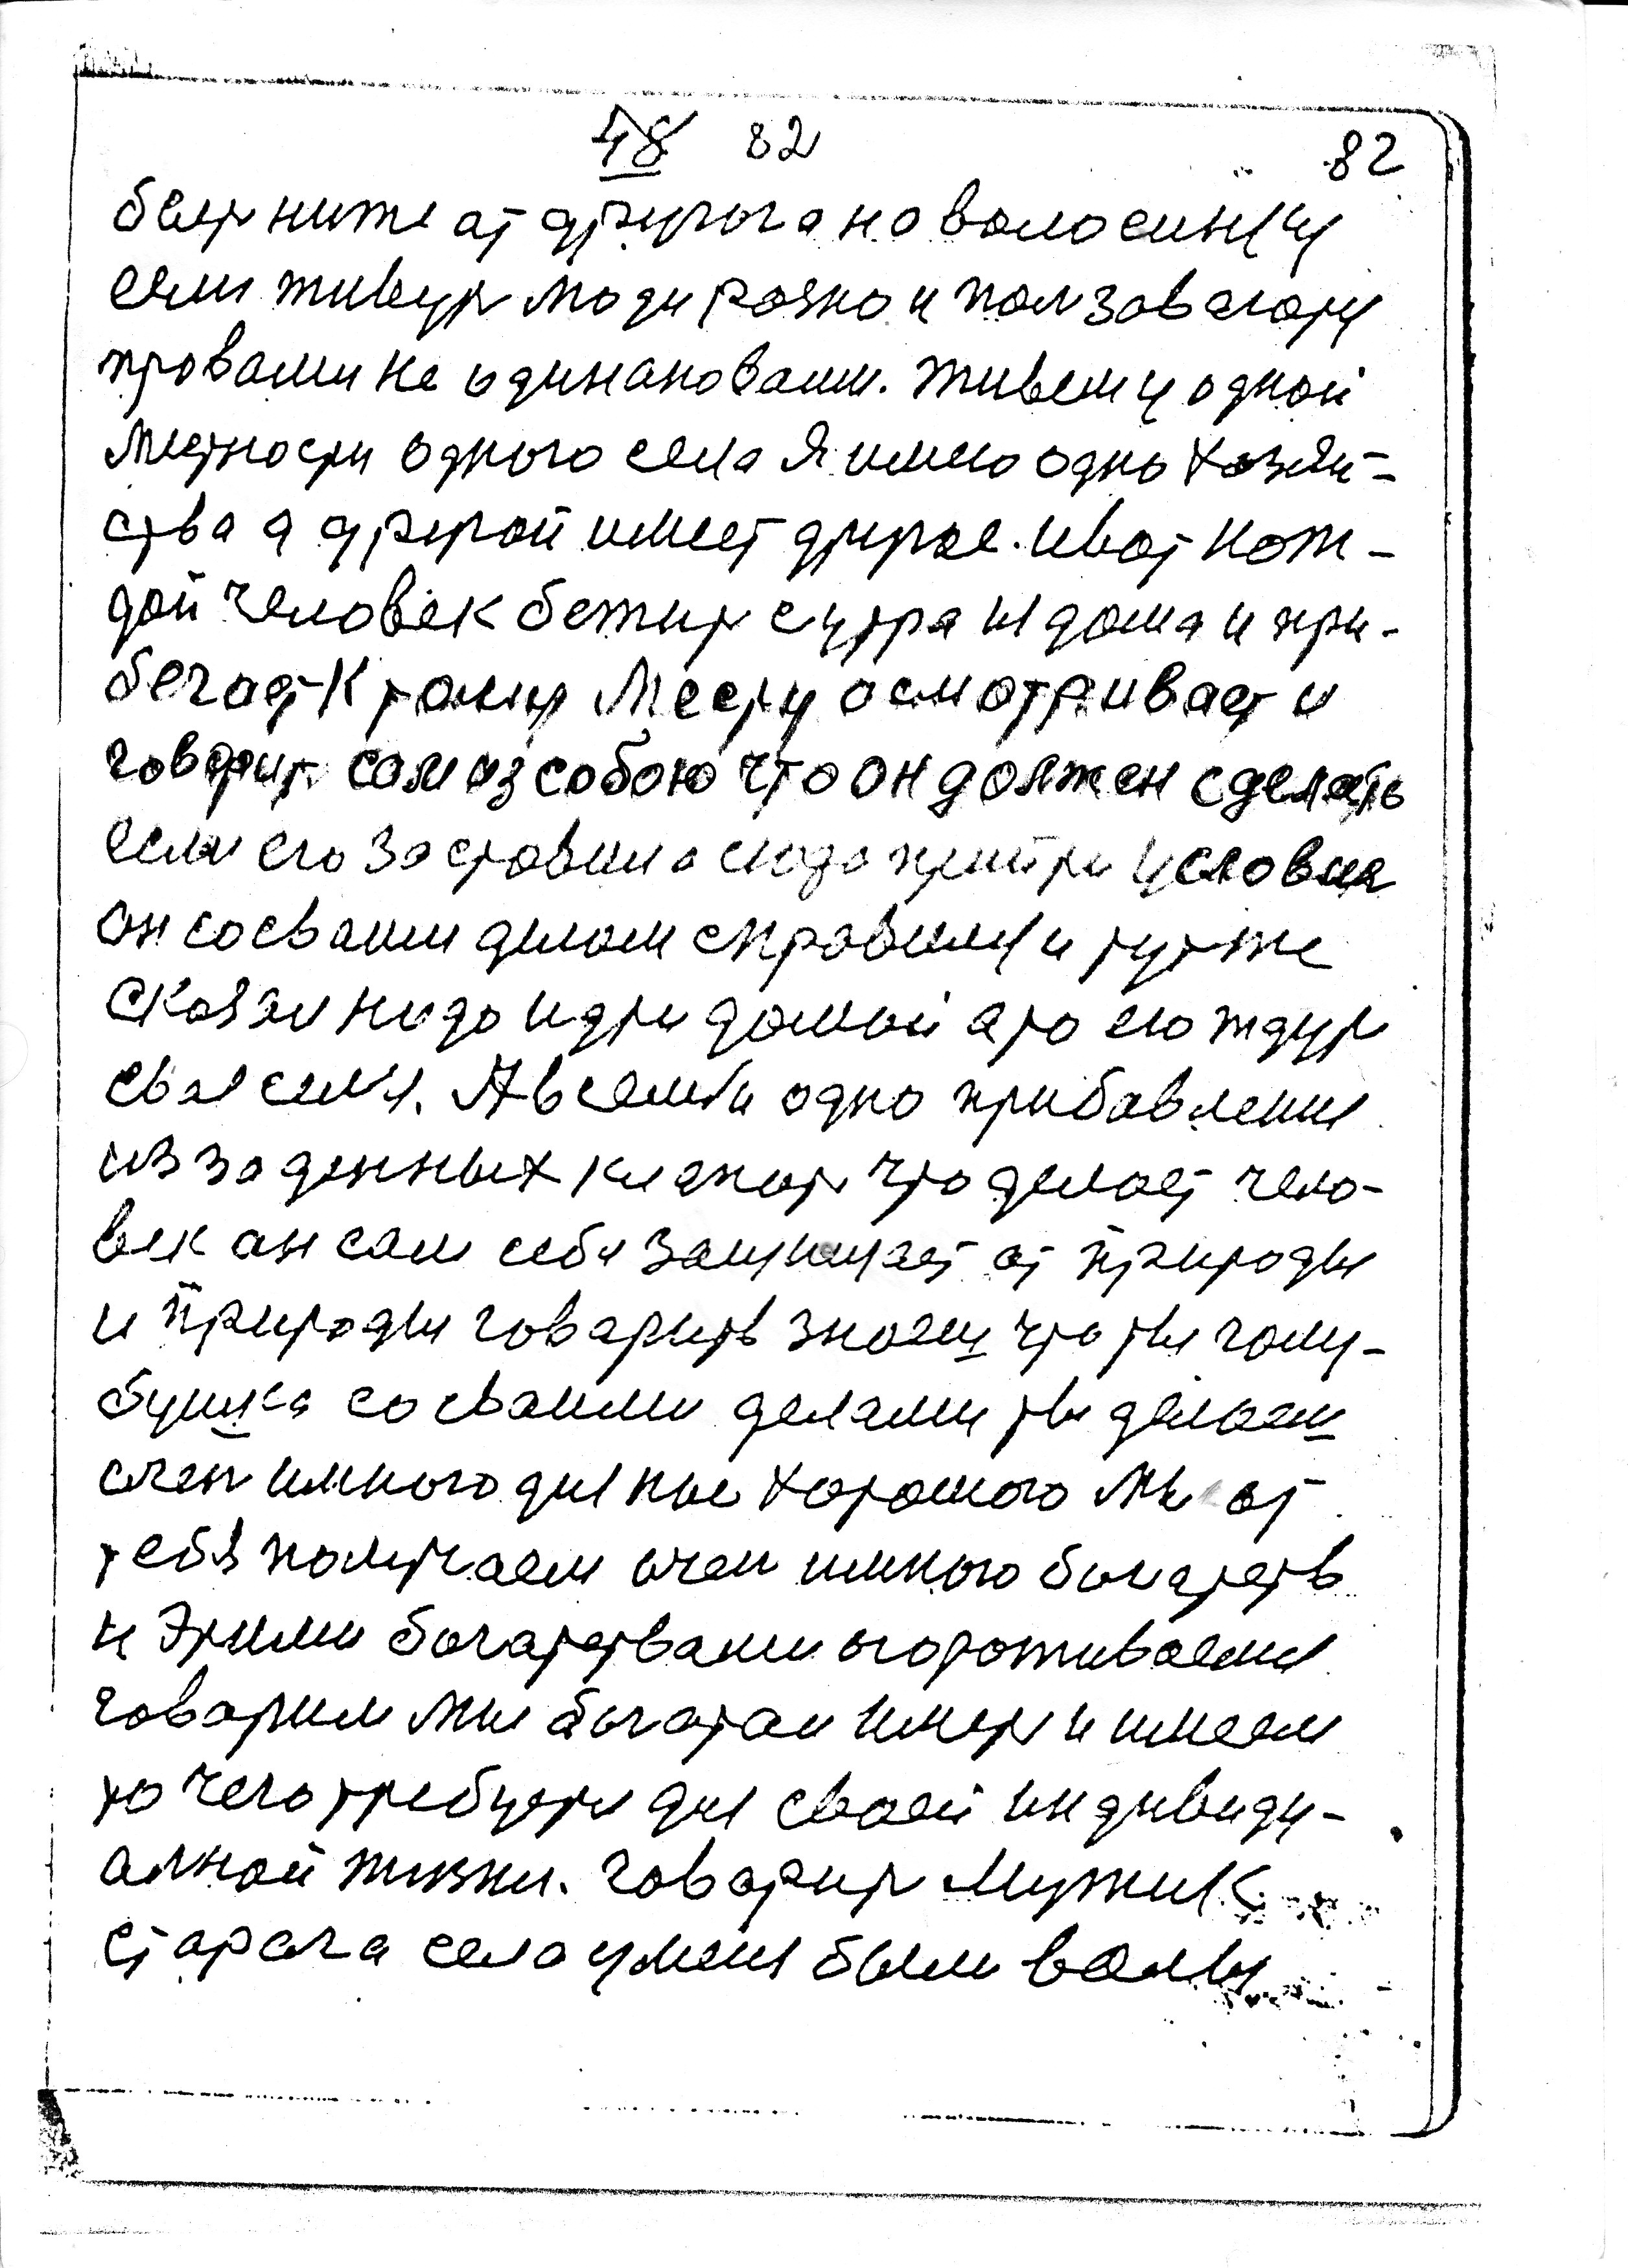 48 82 82
беят ниже ат другога но волосинку
сели живут люди розно и ползоваюту
провами не одинаковами. Живем у одной
Местности одного села Я имею одно хозяй-
ства а другой имеет другое. И вот кож-
дой человек бежит с утра из дома и при-
бегает К таму Месту осматривает и
говорит сам из собою что он должен сделать
если его заставила сюда прийти условия
он со сваим делом справился и тутже
сказал нидо идти домой а то его ждут
свая семя. А в семи одно прибавления
из за данных клапот что делает чело-
век ан сам себя защищает от природы
и природы говарить знаеш что ты галу-
бушка со сваими делами ты делаеш
очен много для нас хорошого Мы от
тебя получаем очен много богатств
и Этими богатствами огороживаемся
говарим мы багатаи имер и имеем
то чего требуети для своей индивиду-
алной жизни. Говарит Мужик
старага села у меня были волы